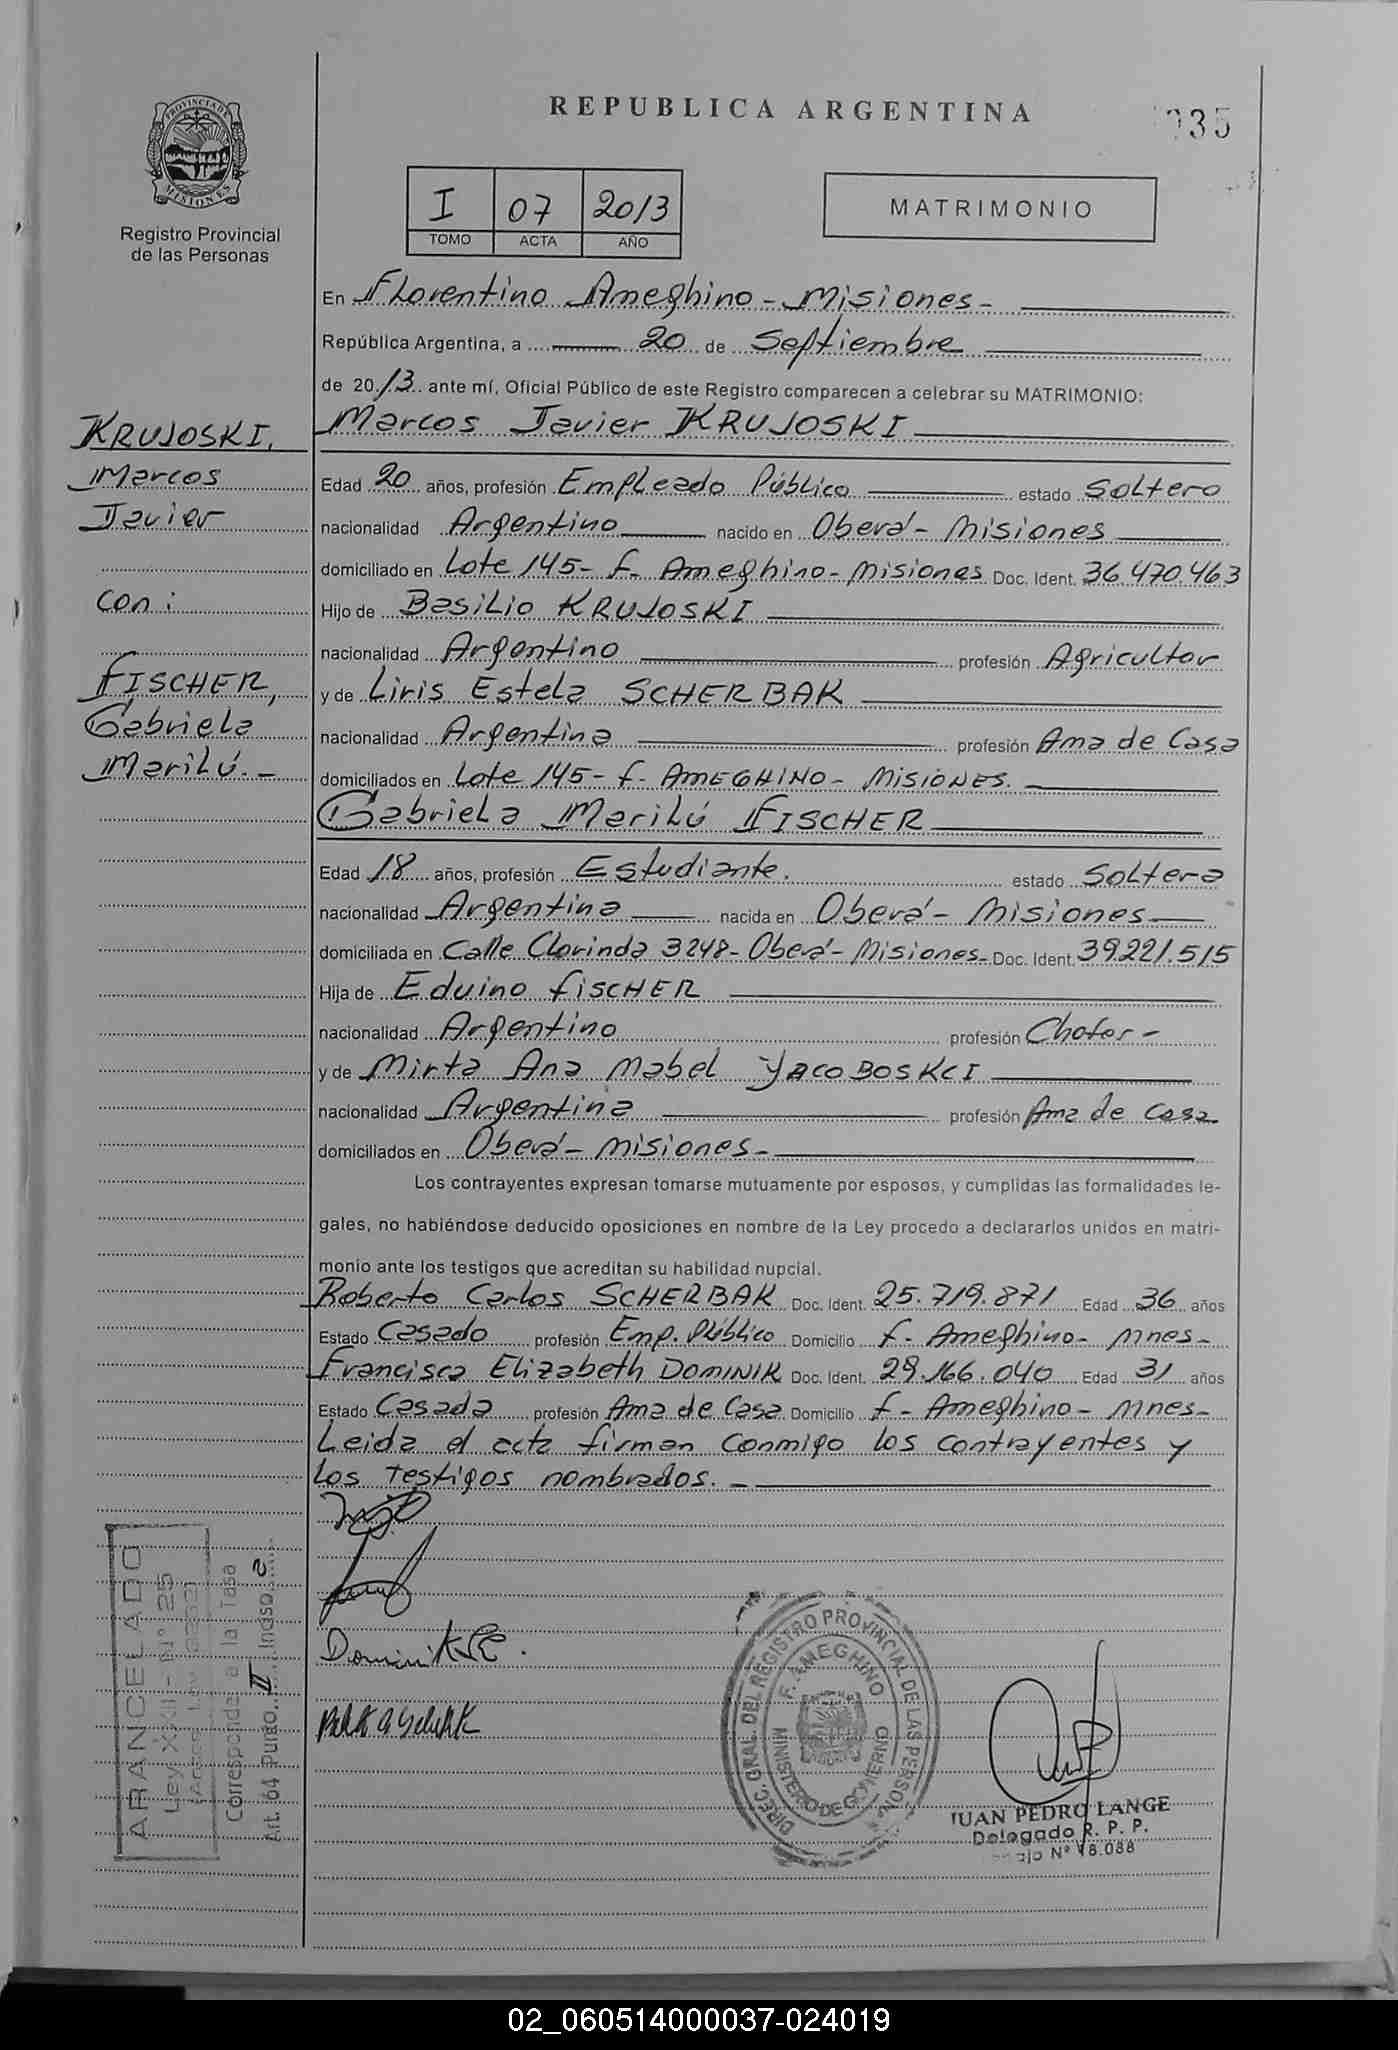 REPUBLICA ARGENTINA
035
PROVINCIA DE MISIONES
Registro Provincial
de las Personas
I 07 2013
TOMO ACTA AÑO
MATRIMONIO
En Florentino Ameghino - Misiones -
República Argentina, a 20 de Septiembre
de 2013 ante mí, Oficial Público de este Registro comparecen a celebrar su MATRIMONIO:
KRUJOSKI,
Marcos
Javier
con:
FISCHER,
Gabriela
Marilú. -
Marcos Javier KRUJOSKI
Edad 20 años, profesión Empleado Público estado Soltero
nacionalidad Argentino nacido en Oberá - Misiones
domiciliado en Lote 145 - F. Ameghino - Misiones Doc. Ident. 36.470.463
Hijo de Basilio KRUJOSKI
nacionalidad Argentino profesión Agricultor
y de Liris Estela SCHERBAK
nacionalidad Argentina profesión Ama de Casa
domiciliados en Lote 145 - F. AMEGHINO - MISIONES.
Gabriela Marilú FISCHER
Edad 18 años, profesión Estudiante. estado Soltera
nacionalidad Argentina nacida en Oberá - Misiones
domiciliada en Calle Clorinda 3248 - Oberá - Misiones - Doc. Ident. 39.221.515
Hija de Eduino FISCHER
nacionalidad Argentino profesión Chofer -
y de Mirta Ana Mabel YACOBOSKCI
nacionalidad Argentina profesión Ama de Casa
domiciliados en Oberá - Misiones -
Los contrayentes expresan tomarse mutuamente por esposos, y cumplidas las formalidades le-
gales, no habiéndose deducido oposiciones en nombre de la Ley procedo a declararlos unidos en matri-
monio ante los testigos que acreditan su habilidad nupcial.
Roberto Carlos SCHERBAK Doc. Ident. 25.719.871 Edad 36 años
Estado Casado profesión Emp. Público Domicilio F. Ameghino - Mnes -
Francisca Elizabeth DOMINIK Doc. Ident. 29.166.040 Edad 31 años
Estado Casada profesión Ama de Casa Domicilio F - Ameghino - Mnes -
Leida el acta firman conmigo los contrayentes y
los testigos nombrados. -
ARANCELADO
Ley XXII - N° 25
Corresponde a la Tasa
Art. 64 Punto II Inciso 2
DIREC. GRAL. DEL REGISTRO PROVINCIAL DE LAS PERSONAS
F. AMEGHINO
MINISTERIO DE GOBIERNO
JUAN PEDRO LANGE
Delegado R. P. P.